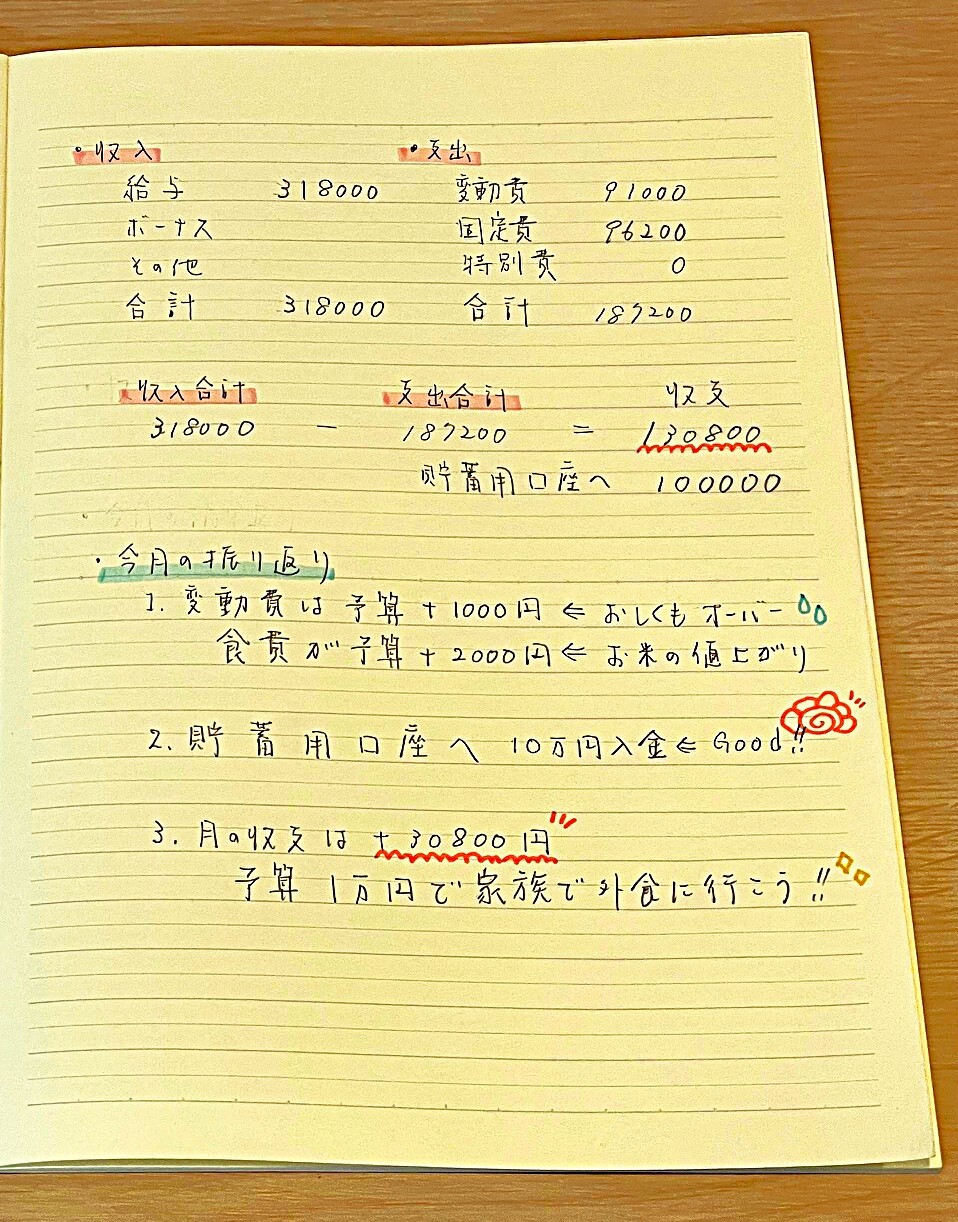 ・収入 ・支出
給与 318000 変動費 91000
ボーナス 固定費 96200
その他 特別費 0
合計 318000 合計 187200
収入合計 支出合計 収支
318000 － 187200 = 130800
貯蓄用口座へ 100000
・今月の振り返り
1. 変動費は予算+1000円 ⇐ おしくもオーバー
食費が予算+2000円 ⇐ お米の値上がり
2. 貯蓄用口座へ 10万円入金 ⇐ Good!!
3. 月の収支は +30800円
予算 1万円で家族で外食に行こう!!